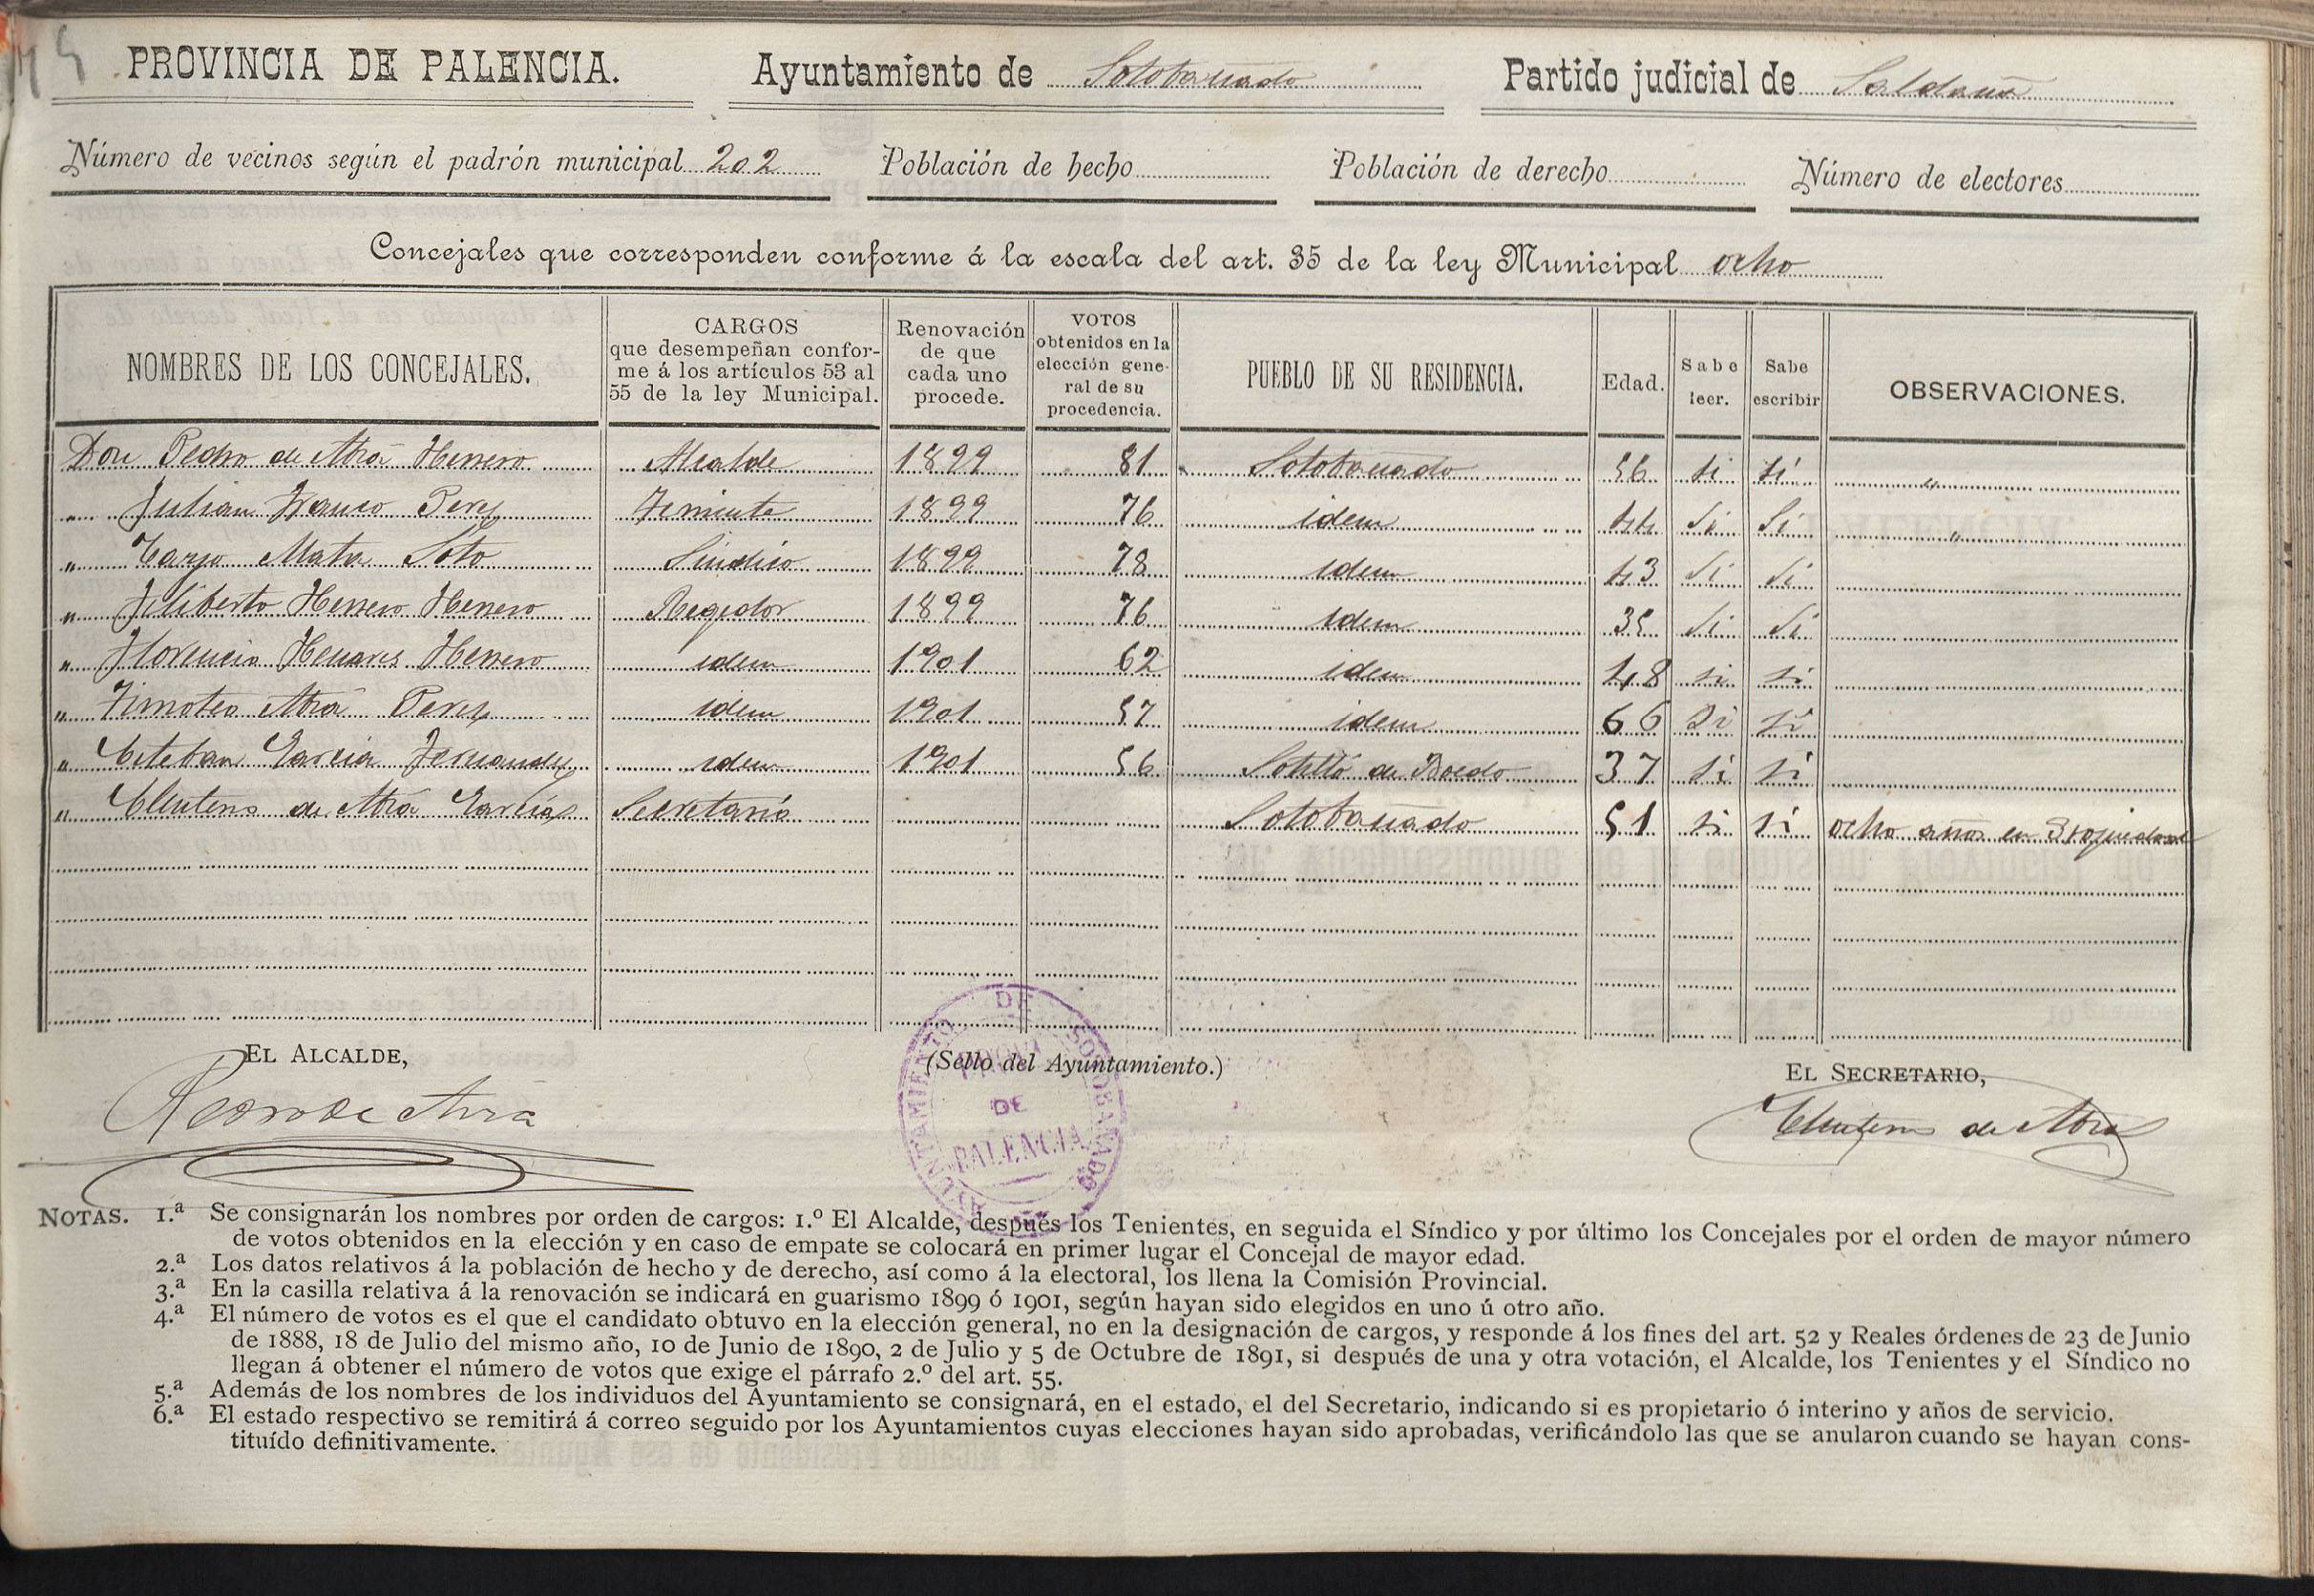 PROVINCIA DE PALENCIA. Ayuntamiento de Sotobañado Partido judicial de Saldaña
Número de vecinos según el padrón municipal 202 Población de hecho Población de derecho Número de electores
Concejales que corresponden conforme á la escala del art. 35 de la ley Municipal ocho
NOMBRES DE LOS CONCEJALES. CARGOS que desempeñan conforme á los artículos 53 al 55 de la ley Municipal. Renovación de que cada uno procede. VOTOS obtenidos en la elección general de su procedencia. PUEBLO DE SU RESIDENCIA. Edad. Sabe leer. Sabe escribir OBSERVACIONES.
Don Pedro de Abia Herrero Alcalde 1899 81 Sotobañado 56 si si "
" Julian Franco Perez Teniente 1899 76 idem 44 Si Si "
" Mata Soto Sindico 1899 78 idem 43 Si Si
" Filiberto Herrero Herrero Regidor 1899 76 idem 35 Si Si
" Florencio Henares Herrero idem 1901 62 idem 48 si si
" Timoteo Abia Perez idem 1901 57 idem 66 Si si
" Esteban Garcia Fernandez idem 1901 56 Sotillo de Boedo 37 si si
" Eleuterio de Abia Garcia Secretario Sotobañado 51 si si ocho años en
EL ALCALDE, (Sello del Ayuntamiento.) EL SECRETARIO,
Pedro de Abia Eleuterio de Abia
AYUNTAMIENTO DE SOTOBAÑADO
DE
PALENCIA
NOTAS. 1.ª Se consignarán los nombres por orden de cargos: 1.º El Alcalde, después los Tenientes, en seguida el Síndico y por último los Concejales por el orden de mayor número
de votos obtenidos en la elección y en caso de empate se colocará en primer lugar el Concejal de mayor edad.
2.ª Los datos relativos á la población de hecho y de derecho, así como á la electoral, los llena la Comisión Provincial.
3.ª En la casilla relativa á la renovación se indicará en guarismo 1899 ó 1901, según hayan sido elegidos en uno ú otro año.
4.ª El número de votos es el que el candidato obtuvo en la elección general, no en la designación de cargos, y responde á los fines del art. 52 y Reales órdenes de 23 de Junio
de 1888, 18 de Julio del mismo año, 10 de Junio de 1890, 2 de Julio y 5 de Octubre de 1891, si después de una y otra votación, el Alcalde, los Tenientes y el Síndico no
llegan á obtener el número de votos que exige el párrafo 2.º del art. 55.
5.ª Además de los nombres de los individuos del Ayuntamiento se consignará, en el estado, el del Secretario, indicando si es propietario ó interino y años de servicio.
6.ª El estado respectivo se remitirá á correo seguido por los Ayuntamientos cuyas elecciones hayan sido aprobadas, verificándolo las que se anularon cuando se hayan cons-
tituído definitivamente.